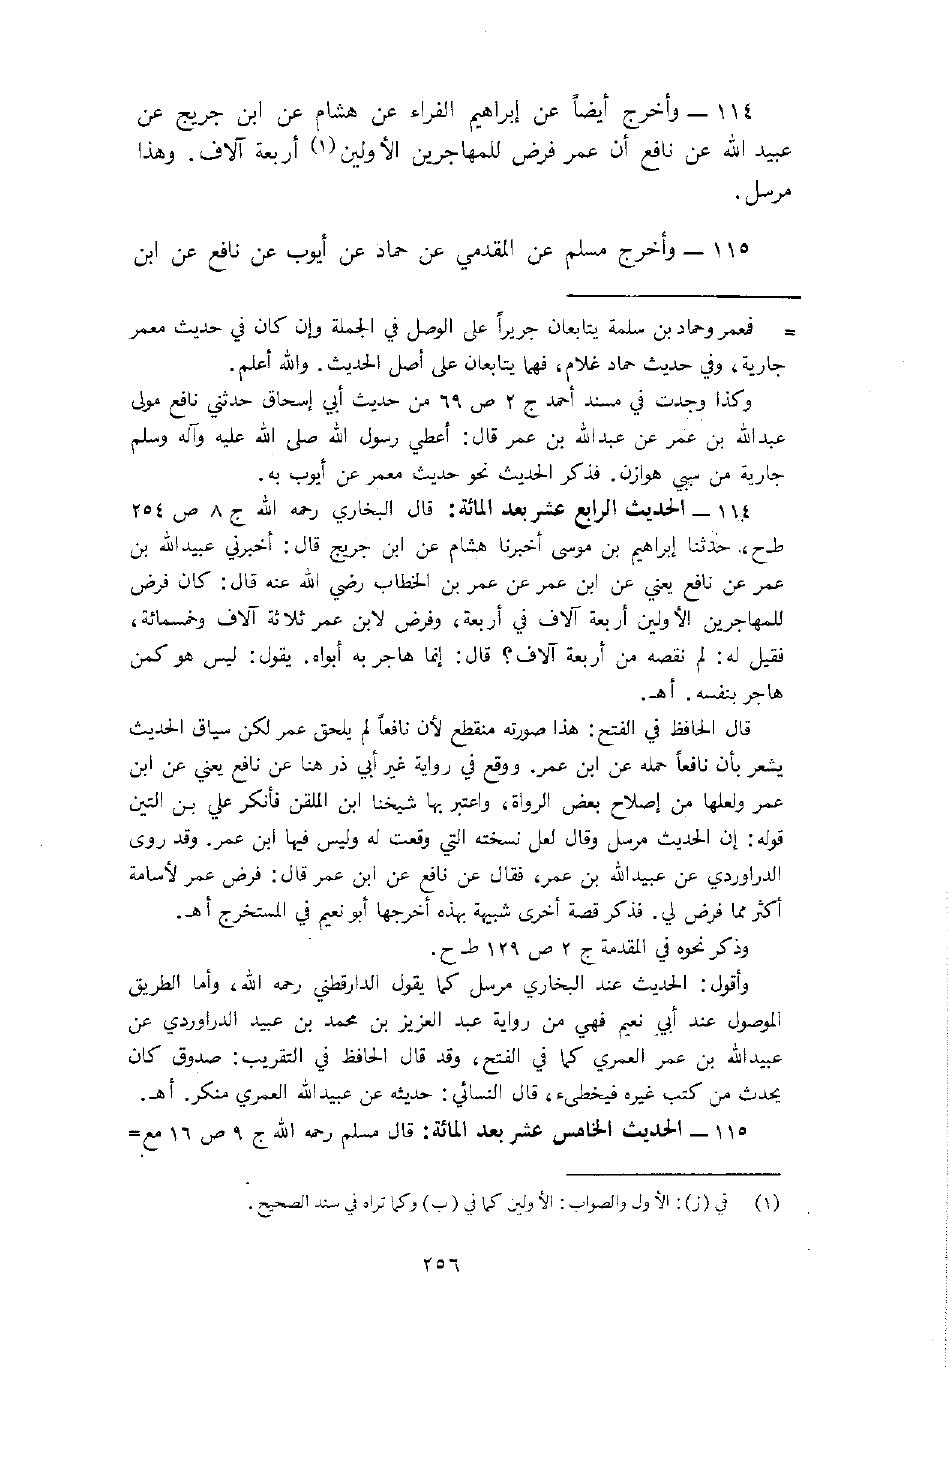 ١١٤ ــ وأخرج أيضاً عن إبراهيم الفراء عن هشام عن ابن جريج عن
عبيد الله عن نافع أن عمر فرض للمهاجرين الأولين(١) أربعة آلاف. وهذا
مرسل.
١١٥ ــ وأخرج مسلم عن المقدمي عن حماد عن أيوب عن نافع عن ابن
= فعمر وحماد بن سلمة يتابعان جريراً على الوصل في الجملة وإن كان في حديث معمر
جارية، وفي حديث حماد غلام، فهما يتابعان على أصل الحديث. والله أعلم.
وكذا وجدت في مسند أحمد ج ٢ ص ٦٩ من حديث أبي إسحاق حدثني نافع مولى
عبدالله بن عمر عن عبدالله بن عمر قال: أعطي رسول الله صلى الله عليه وآله وسلم
جارية من سبي هوازن. فذكر الحديث نحو حديث معمر عن أيوب به.
١١٤ ــ الحديث الرابع عشر بعد المائة: قال البخاري رحمه الله ج ٨ ص ٢٥٤
ط ح، حدثنا إبراهيم بن موسى أخبرنا هشام عن ابن جريج قال: أخبرني عبيدالله بن
عمر عن نافع يعني عن ابن عمر عن عمر بن الخطاب رضي الله عنه قال: كان فرض
للمهاجرين الأولين أربعة آلاف في أربعة، وفرض لابن عمر ثلاثة آلاف وخمسمائة،
فقيل له: لم نقصه من أربعة آلاف؟ قال: إنما هاجر به أبواه. يقول: ليس هو كمن
هاجر بنفسه. أهـ.
قال الحافظ في الفتح: هذا صورته منقطع لأن نافعاً لم يلحق عمر لكن سياق الحديث
يشعر بأن نافعاً حمله عن ابن عمر. ووقع في رواية غير أبي ذر هنا عن نافع يعني عن ابن
عمر ولعلها من إصلاح بعض الرواة، واعتبر بها شيخنا ابن الملقن فأنكر علي بن التين
قوله: إن الحديث مرسل وقال لعل نسخته التي وقعت له وليس فيها ابن عمر. وقد روى
الدراوردي عن عبيدالله بن عمر، فقال عن نافع عن ابن عمر قال: فرض عمر لأسامة
أكثر مما فرض لي. فذكر قصة أخرى شبيهة بهذه أخرجها أبو نعيم في المستخرج أهـ.
وذكر نحوه في المقدمة ج ٢ ص ١٢٩ ط ح.
وأقول: الحديث عند البخاري مرسل كما يقول الدارقطني رحمه الله، وأما الطريق
الموصول عند أبي نعيم فهي من رواية عبد العزيز بن محمد بن عبيد الدراوردي عن
عبيدالله بن عمر العمري كما في الفتح، وقد قال الحافظ في التقريب: صدوق كان
يحدث من كتب غيره فيخطىء، قال النسائي: حديثه عن عبيدالله العمري منكر. أهـ.
١١٥ ــ الحديث الخامس عشر بعد المائة: قال مسلم رحمه الله ج ٩ ص ١٦ مع=
(١) في (ز): الأول والصواب: الأولين كما في (ب) وكما تراه في سند الصحيح.
٢٥٦